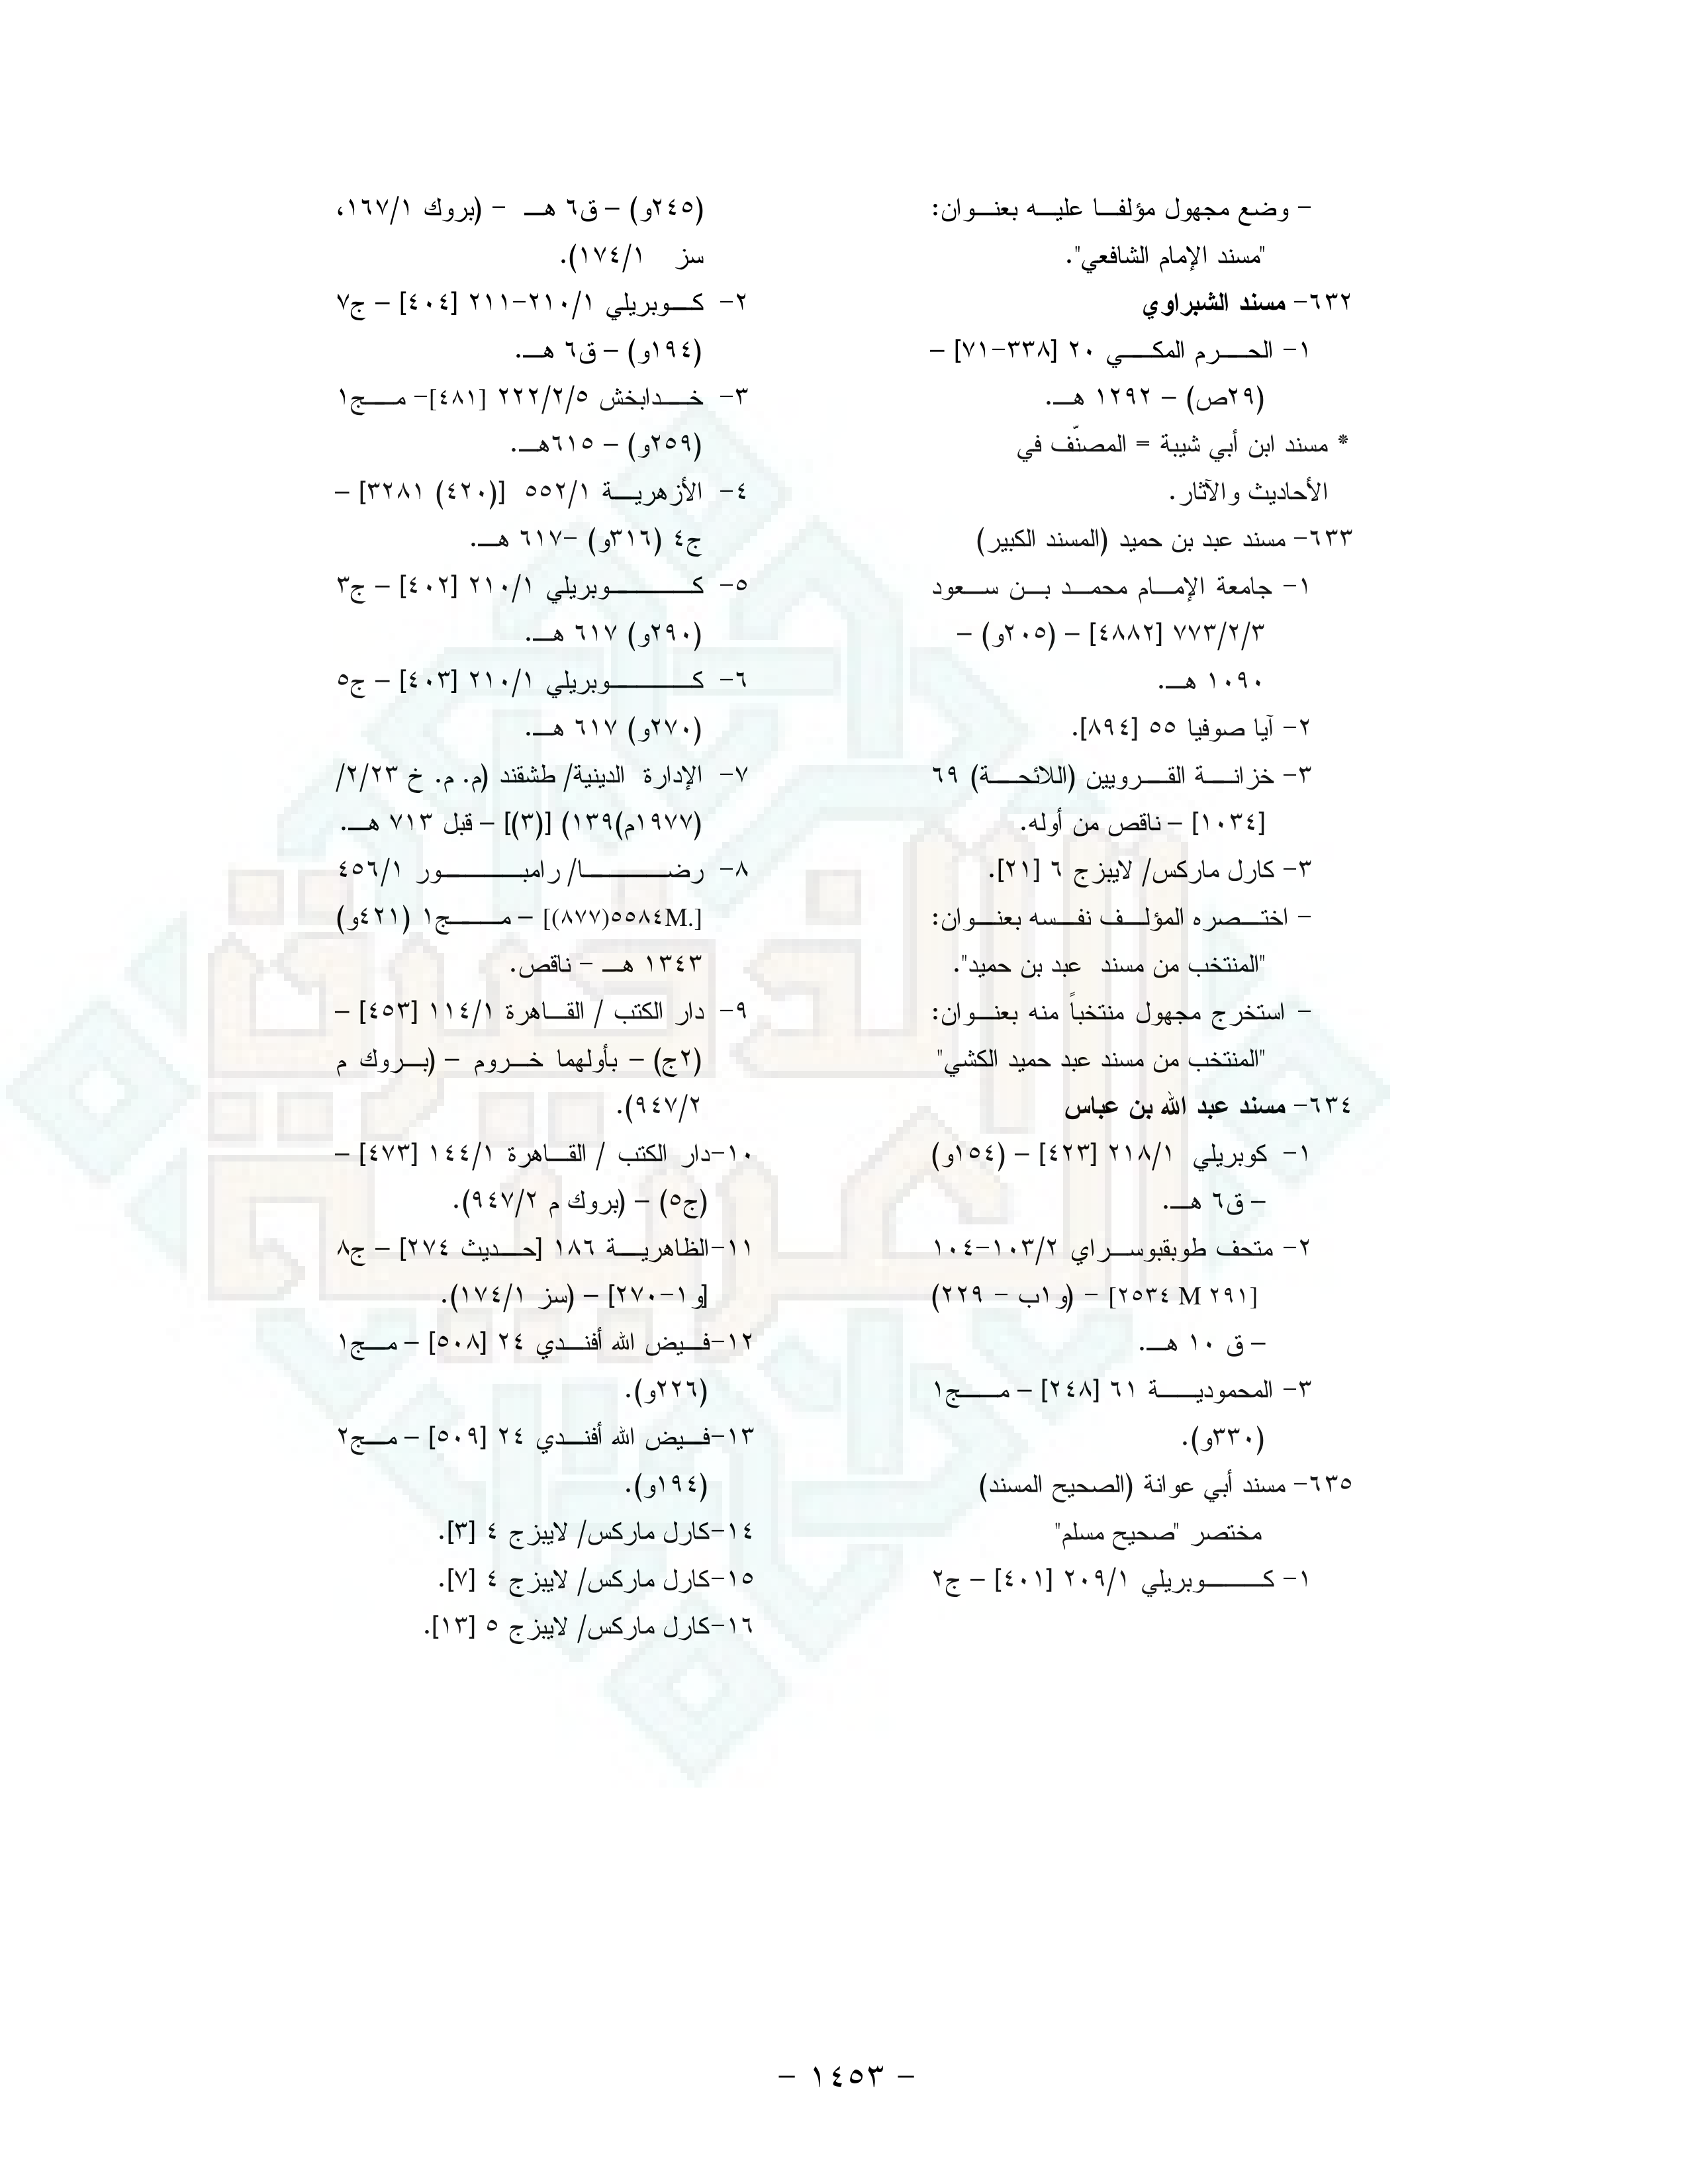 - وضع مجهول مؤلفا عليه بعنوان:
"مسند الإمام الشافعي".
٦٣٢- مسند الشبراوي
١- الحرم المكي ٢٠ [٣٣٨-٧١] –
(٢٩ص) – ١٢٩٢ هـ.
* مسند ابن أبي شيبة = المصنّف في
الأحاديث والآثار.
٦٣٣- مسند عبد بن حميد (المسند الكبير)
١- جامعة الإمام محمد بن سعود
٧٧٣/٢/٣ [٤٨٨٢] – (٢٠٥و) –
١٠٩٠ هـ.
٢- آيا صوفيا ٥٥ [٨٩٤].
٣- خزانة القرويين (اللائحة) ٦٩
[١٠٣٤] – ناقص من أوله.
٣- كارل ماركس/ لايبزج ٦ [٢١].
- اختصره المؤلف نفسه بعنوان:
"المنتخب من مسند عبد بن حميد".
- استخرج مجهول منتخباً منه بعنوان:
"المنتخب من مسند عبد حميد الكشي"
٦٣٤- مسند عبد الله بن عباس
١- كوبريلي ٢١٨/١ [٤٢٣] – (١٥٤و)
– ق٦ هـ.
٢- متحف طوبقبوسراي ١٠٣/٢-١٠٤
[٢٥٣٤ M ٢٩١] – (و١ب – ٢٢٩)
– ق ١٠ هـ.
٣- المحمودية ٦١ [٢٤٨] – مج١
(٣٣٠و).
٦٣٥- مسند أبي عوانة (الصحيح المسند)
مختصر "صحيح مسلم"
١- كوبريلي ٢٠٩/١ [٤٠١] – ج٢
(٢٤٥و) – ق٦ هـ – (بروك ١٦٧/١،
سز ١٧٤/١).
٢- كوبريلي ٢١٠/١-٢١١ [٤٠٤] – ج٧
(١٩٤و) – ق٦ هـ.
٣- خدابخش ٢٢٢/٢/٥ [٤٨١]- مج١
(٢٥٩و) – ٦١٥هـ.
٤- الأزهرية ٥٥٢/١ [(٤٢٠) ٣٢٨١] –
ج٤ (٣١٦و) -٦١٧ هـ.
٥- كوبريلي ٢١٠/١ [٤٠٢] – ج٣
(٢٩٠و) ٦١٧ هـ.
٦- كوبريلي ٢١٠/١ [٤٠٣] – ج٥
(٢٧٠و) ٦١٧ هـ.
٧- الإدارة الدينية/ طشقند (م. م. خ ٢/٢٣/
(١٩٧٧م)١٣٩) [(٣)] – قبل ٧١٣ هـ.
٨- رضا/ رامبور ٤٥٦/١
[.M٥٥٨٤(٨٧٧)] – مج١ (٤٢١و)
١٣٤٣ هـ – ناقص.
٩- دار الكتب / القاهرة ١١٤/١ [٤٥٣] –
(٢ج) – بأولهما خروم – (بروك م
٩٤٧/٢).
١٠-دار الكتب / القاهرة ١٤٤/١ [٤٧٣] –
(ج٥) – (بروك م ٩٤٧/٢).
١١-الظاهرية ١٨٦ [حديث ٢٧٤] – ج٨
[و١-٢٧٠] – (سز ١٧٤/١).
١٢-فيض الله أفندي ٢٤ [٥٠٨] – مج١
(٢٢٦و).
١٣-فيض الله أفندي ٢٤ [٥٠٩] – مج٢
(١٩٤و).
١٤-كارل ماركس/ لايبزج ٤ [٣].
١٥-كارل ماركس/ لايبزج ٤ [٧].
١٦-كارل ماركس/ لايبزج ٥ [١٣].
- ١٤٥٣ -